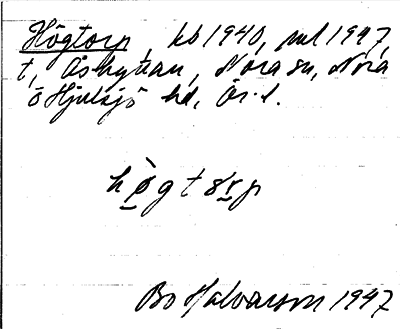 Högtorp, kb 1940, ml 1947,
t, Åshyttan, Nora sn, Nora
o Hjulsjö hd, Ör. l.
Bo Halvarson 1947